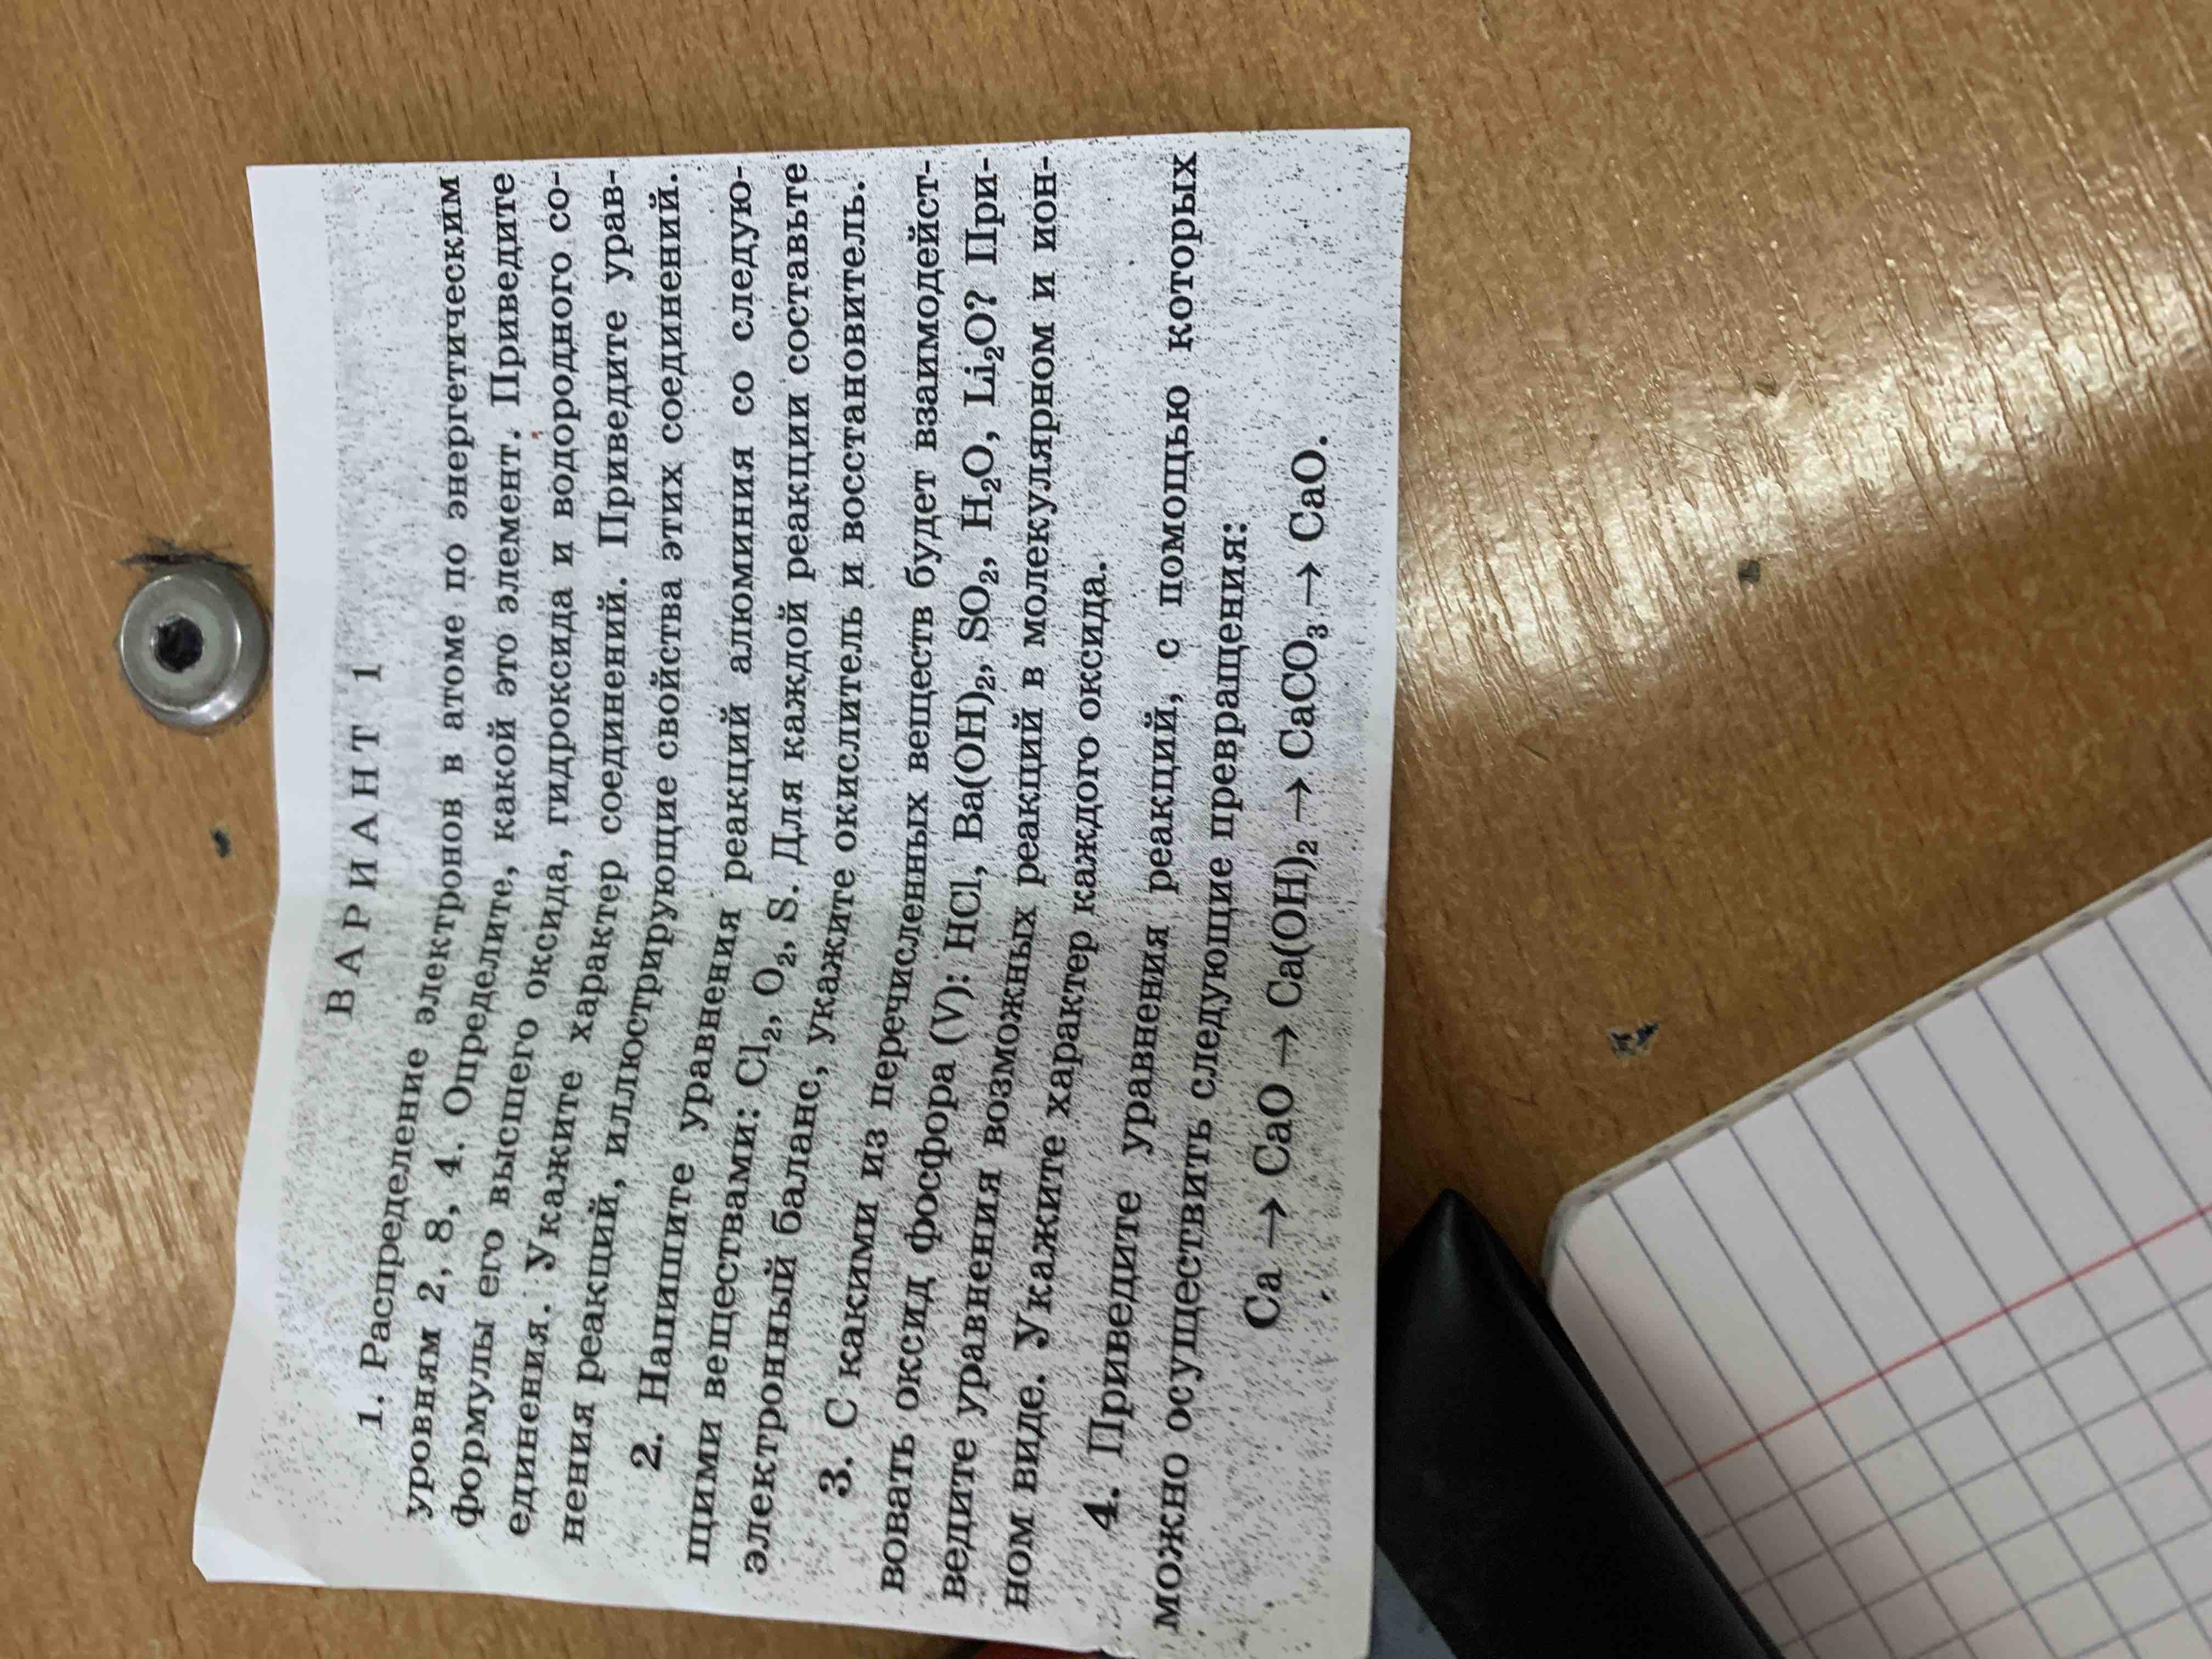 ВАРИАНТ 1
1. Распределение электронов в атоме по энергетическим
уровням 2, 8, 4. Определите, какой это элемент. Приведите
формулы его высшего оксида, гидроксида и водородного со-
единения. Укажите характер соединений. Приведите урав-
нения реакций, иллюстрирующие свойства этих соединений.
2. Напишите уравнения реакций алюминия со следую-
щими веществами: Cl₂, O₂, S. Для каждой реакции составьте
электронный баланс, укажите окислитель и восстановитель.
3. С какими из перечисленных веществ будет взаимодейст-
вовать оксид фосфора (V): HCl, Ba(OH)₂, SO₂, H₂O, Li₂O? При-
ведите уравнения возможных реакций в молекулярном и ион-
ном виде. Укажите характер каждого оксида.
4. Приведите уравнения реакций, с помощью которых
можно осуществить следующие превращения:
Ca → CaO → Ca(OH)₂ → CaCO₃ → CaO.